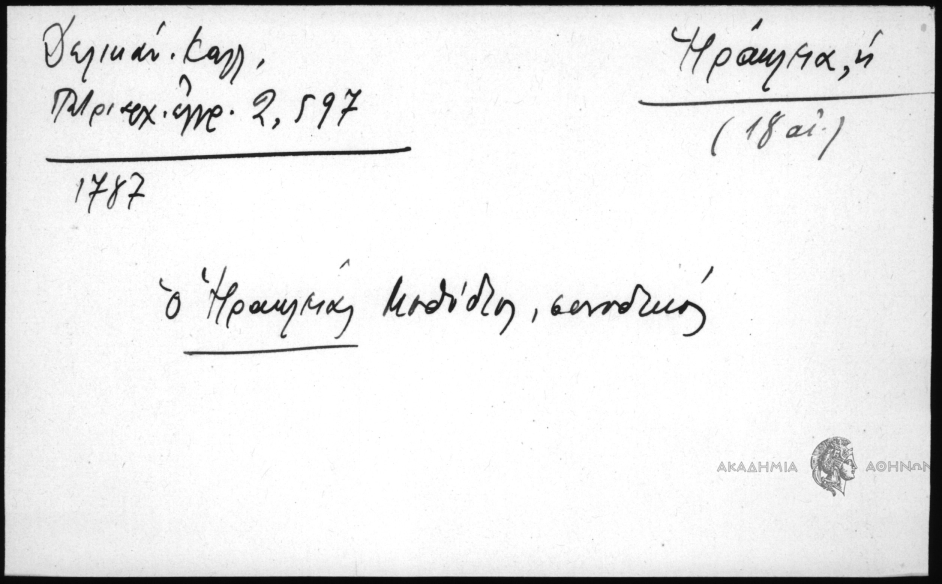 Δελικάν. Καλλ.
Πατριαρχ. ἔγγρ. 2, 597
1787
Ἡράκλεια, ἡ
(18 αἰ.)
ὁ Ἡρακλείας Μεθόδιος, συνοδικός
ΑΚΑΔΗΜΙΑ ΑΘΗΝΩΝ